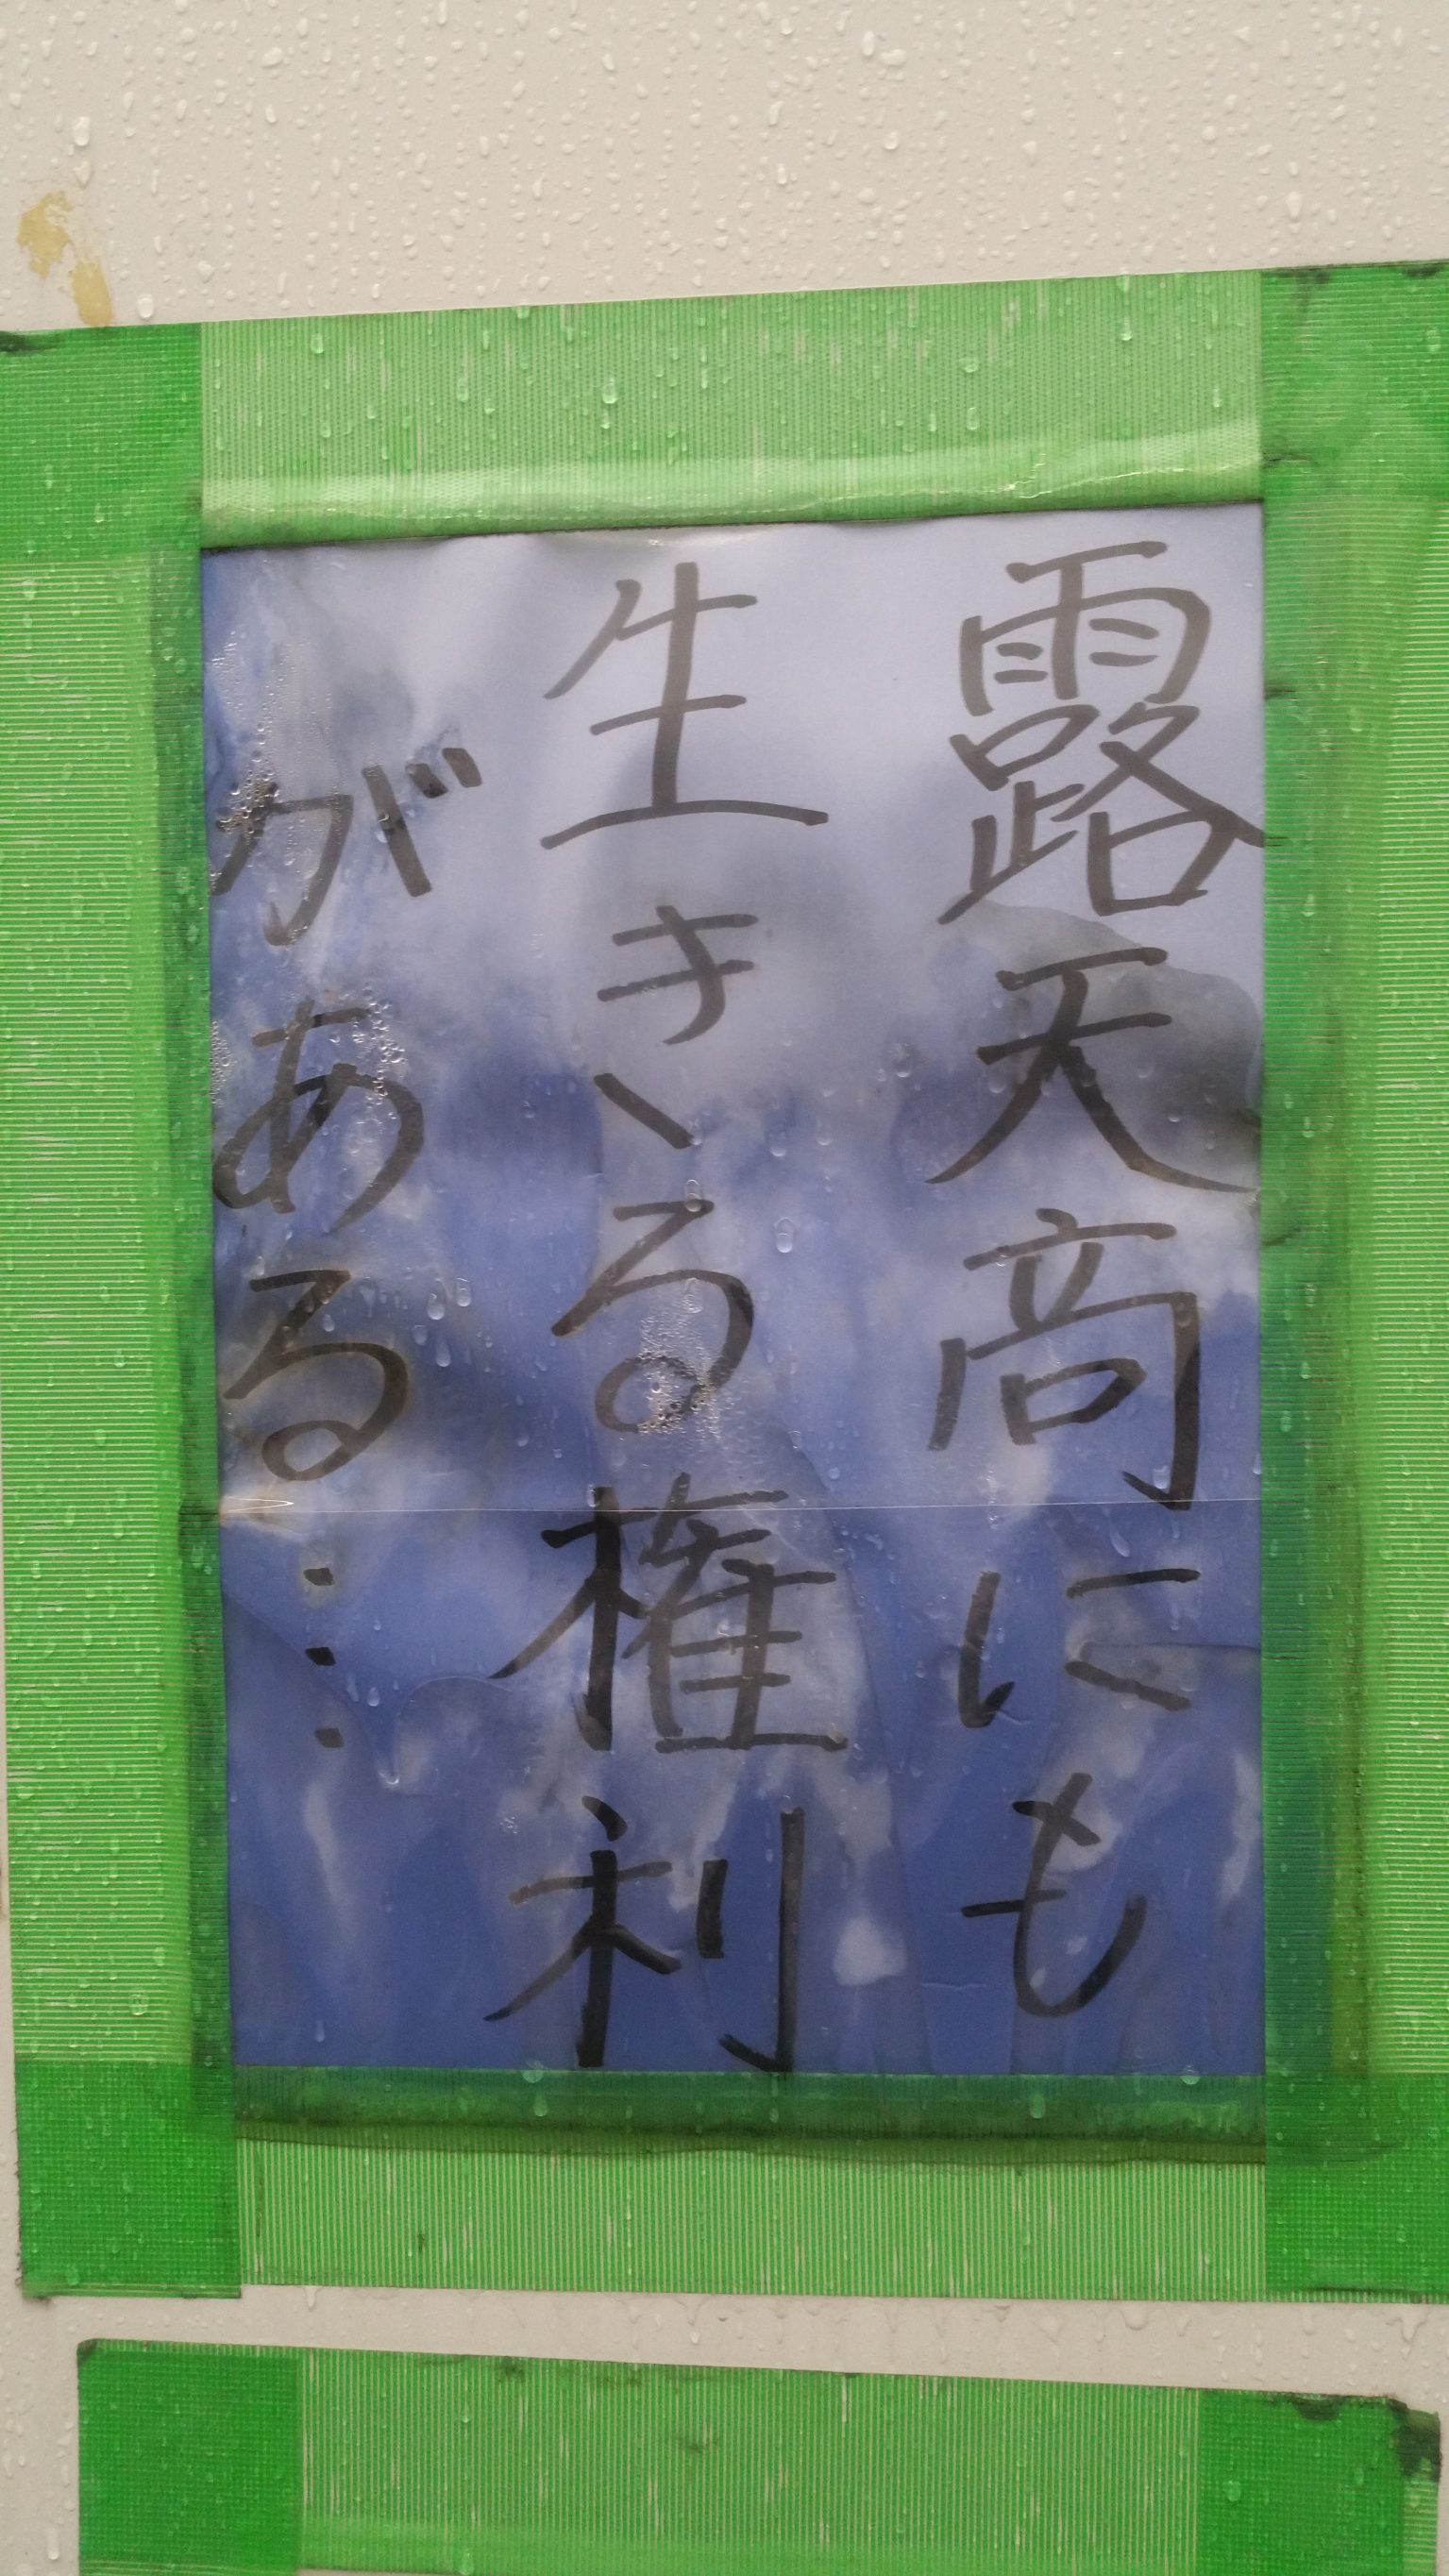 露天商にも
生きる権利
がある…